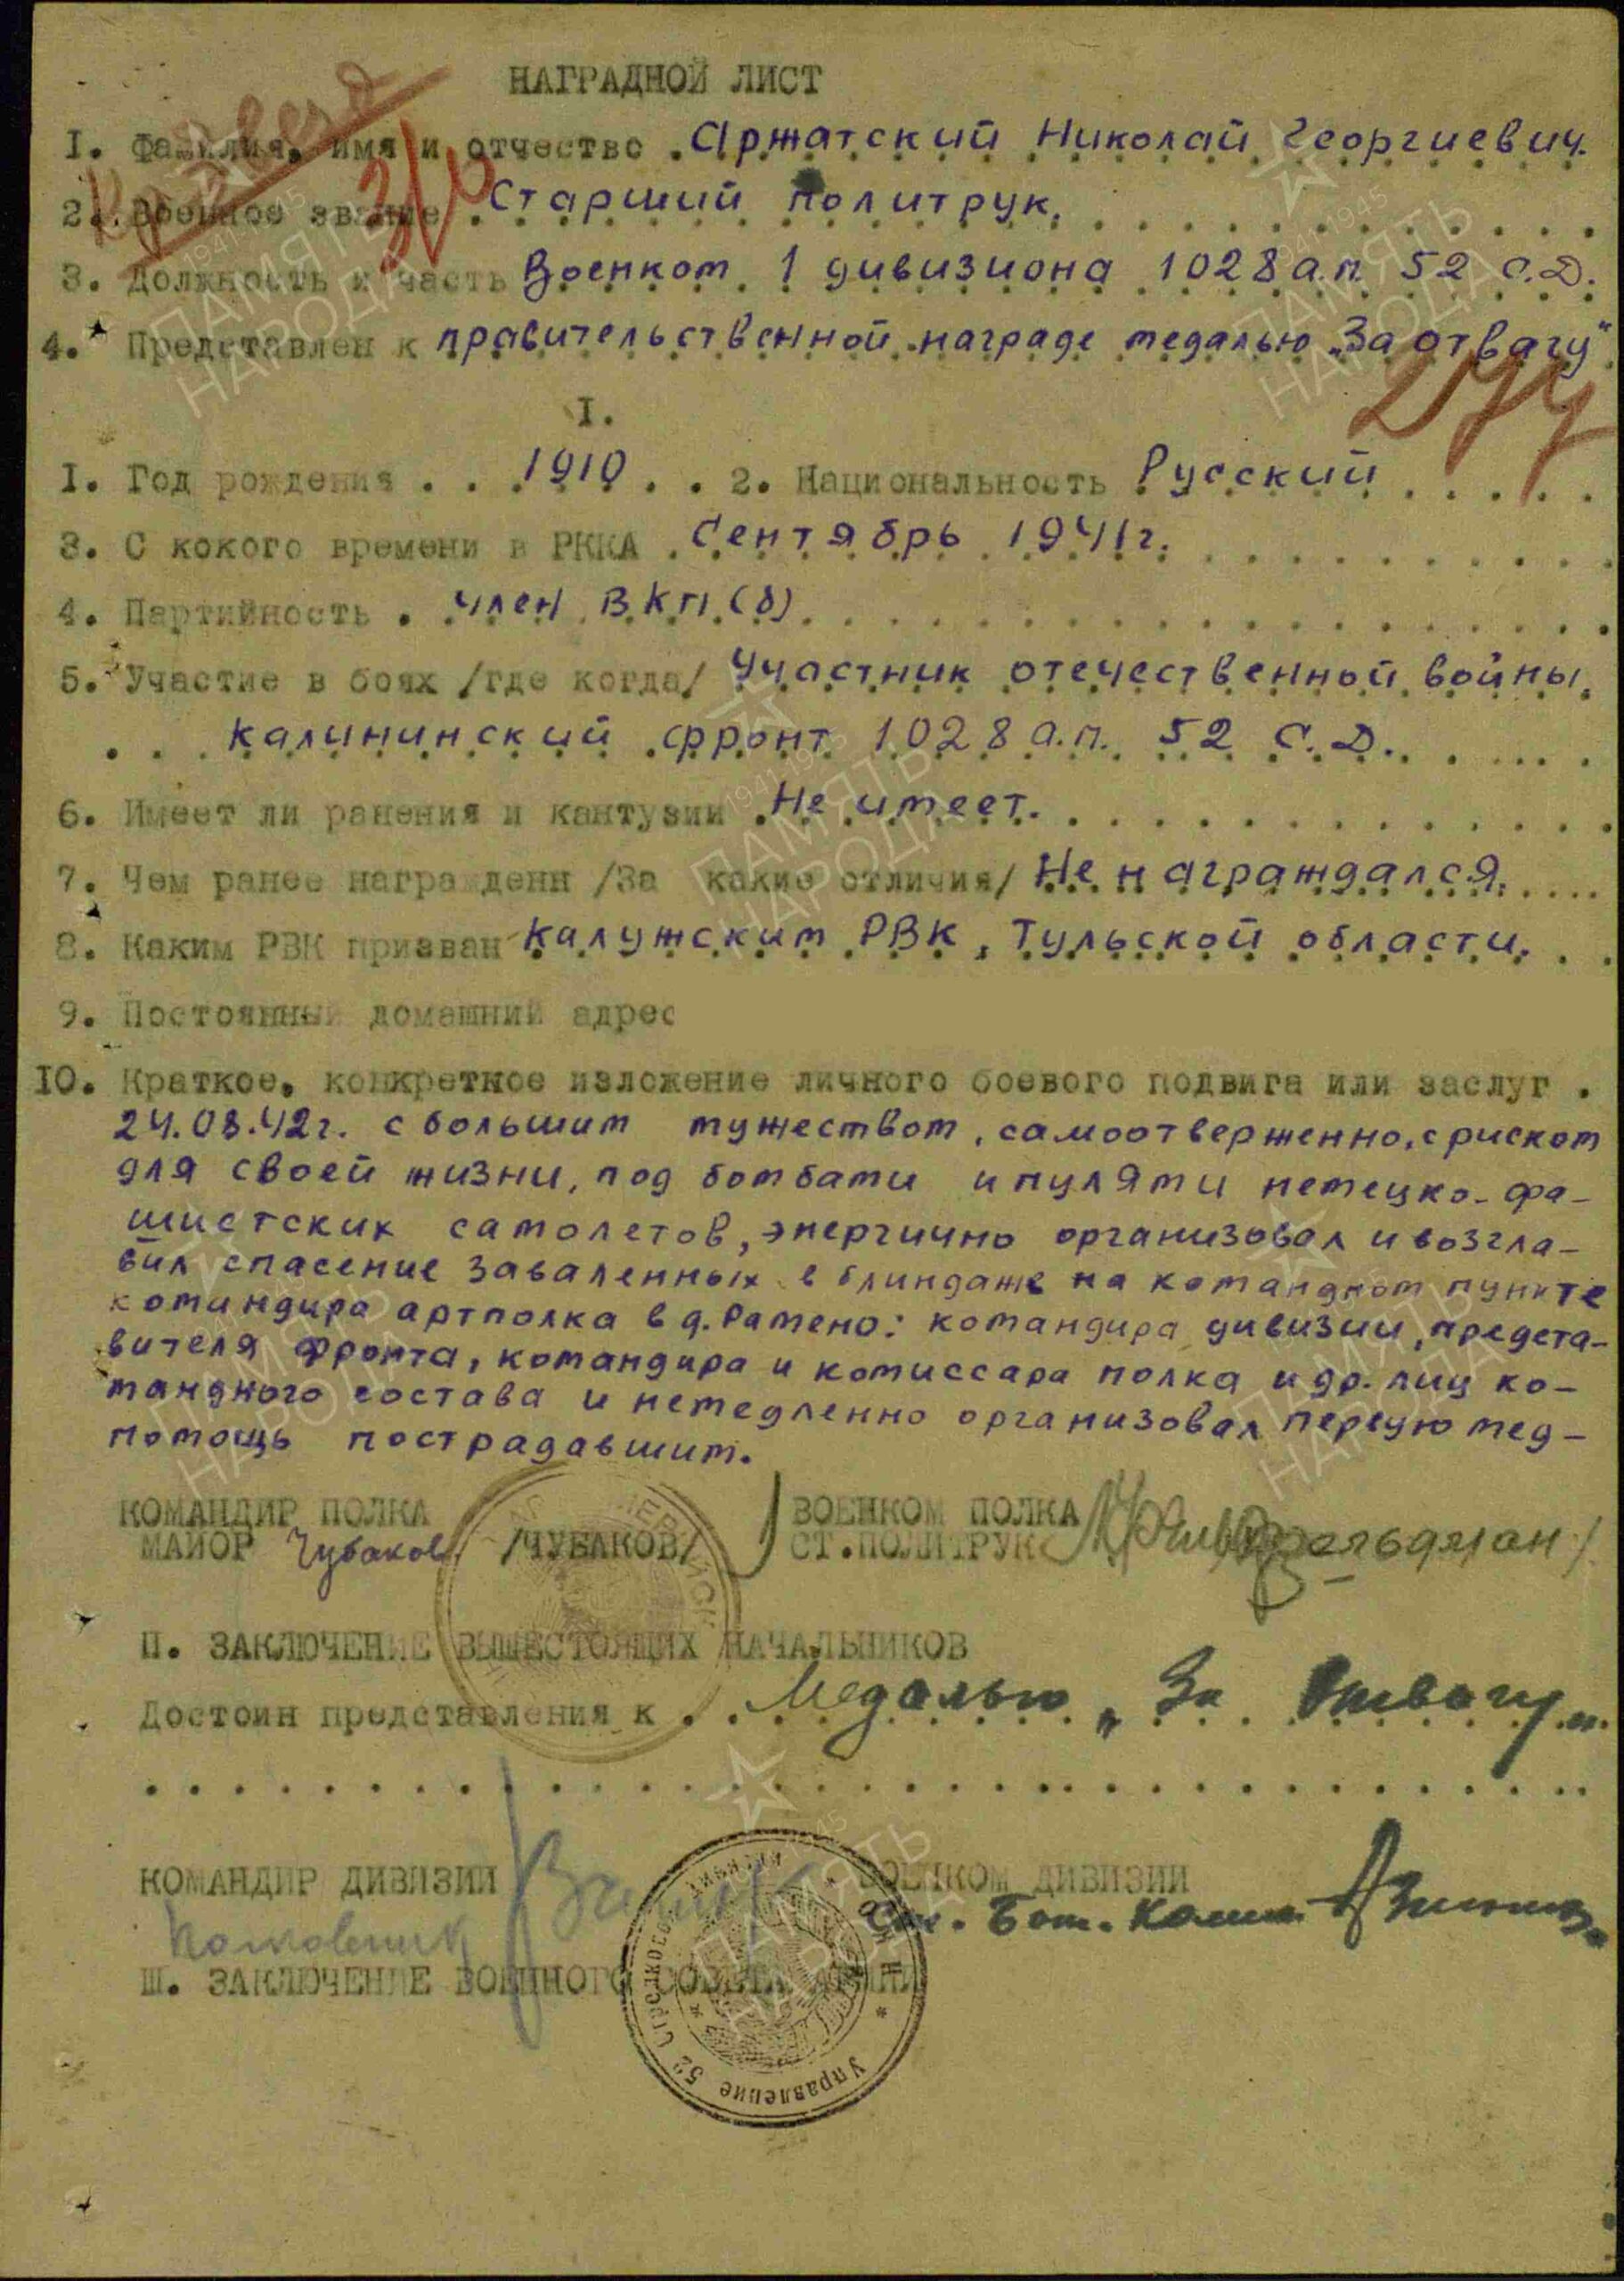 НАГРАДНОЙ ЛИСТ
I. Фамилия, имя и отчество Аржатский Николай Георгиевич.
2. Военное звание Старший политрук.
3. Должность и часть Военком 1 дивизиона 1028 а.п. 52 С.Д.
4. Представлен к правительственной награде медалью "За отвагу"
I.
I. Год рождения . . 1910 . . 2. Национальность Русский
3. С кокого времени в РККА Сентябрь 1941г.
4. Партийность . член ВКП(б)
5. Участие в боях /где когда/ Участник отечественной войны,
Калининский фронт 1028 а.п. 52 С.Д.
6. Имеет ли ранения и кантузии Не имеет.
7. Чем ранее награжденн /За какие отличия/ Не награждался.
8. Каким РВК призван Калужским РВК, Тульской области.
9. Постоянный домашний адрес
IO. Краткое, конкретное изложение личного боевого подвига или заслуг .
24.08.42г. с большим мужеством, самоотверженно, с риском
для своей жизни, под бомбами и пулями немецко-фа-
шистских самолетов, энергично организовал и возгла-
вил спасение заваленных в блиндаже на командном пункте
командира артполка в д. Рамено: командира дивизии, предста-
вителя фронта, командира и комиссара полка и др. лиц ко-
мандного состава и немедленно организовал первую мед-
помощь пострадавшим.
КОМАНДИР ПОЛКА ВОЕНКОМ ПОЛКА
МАЙОР Чубаков /ЧУБАКОВ/ СТ.ПОЛИТРУК Фельдман/
П. ЗАКЛЮЧЕНИЕ ВЫШЕСТОЯЩИХ НАЧАЛЬНИКОВ
Достоин представления к . . Медалью "За Отвагу".
КОМАНДИР ДИВИЗИИ ВОЕНКОМ ДИВИЗИИ
Полковник Бат. Комис.
Ш. ЗАКЛЮЧЕНИЕ ВОЕННОГО СОВЕТА АРМИИ
Управление 52 Стрелковой дивизии * Н К О *
ПАМЯТЬ НАРОДА
1941-1945